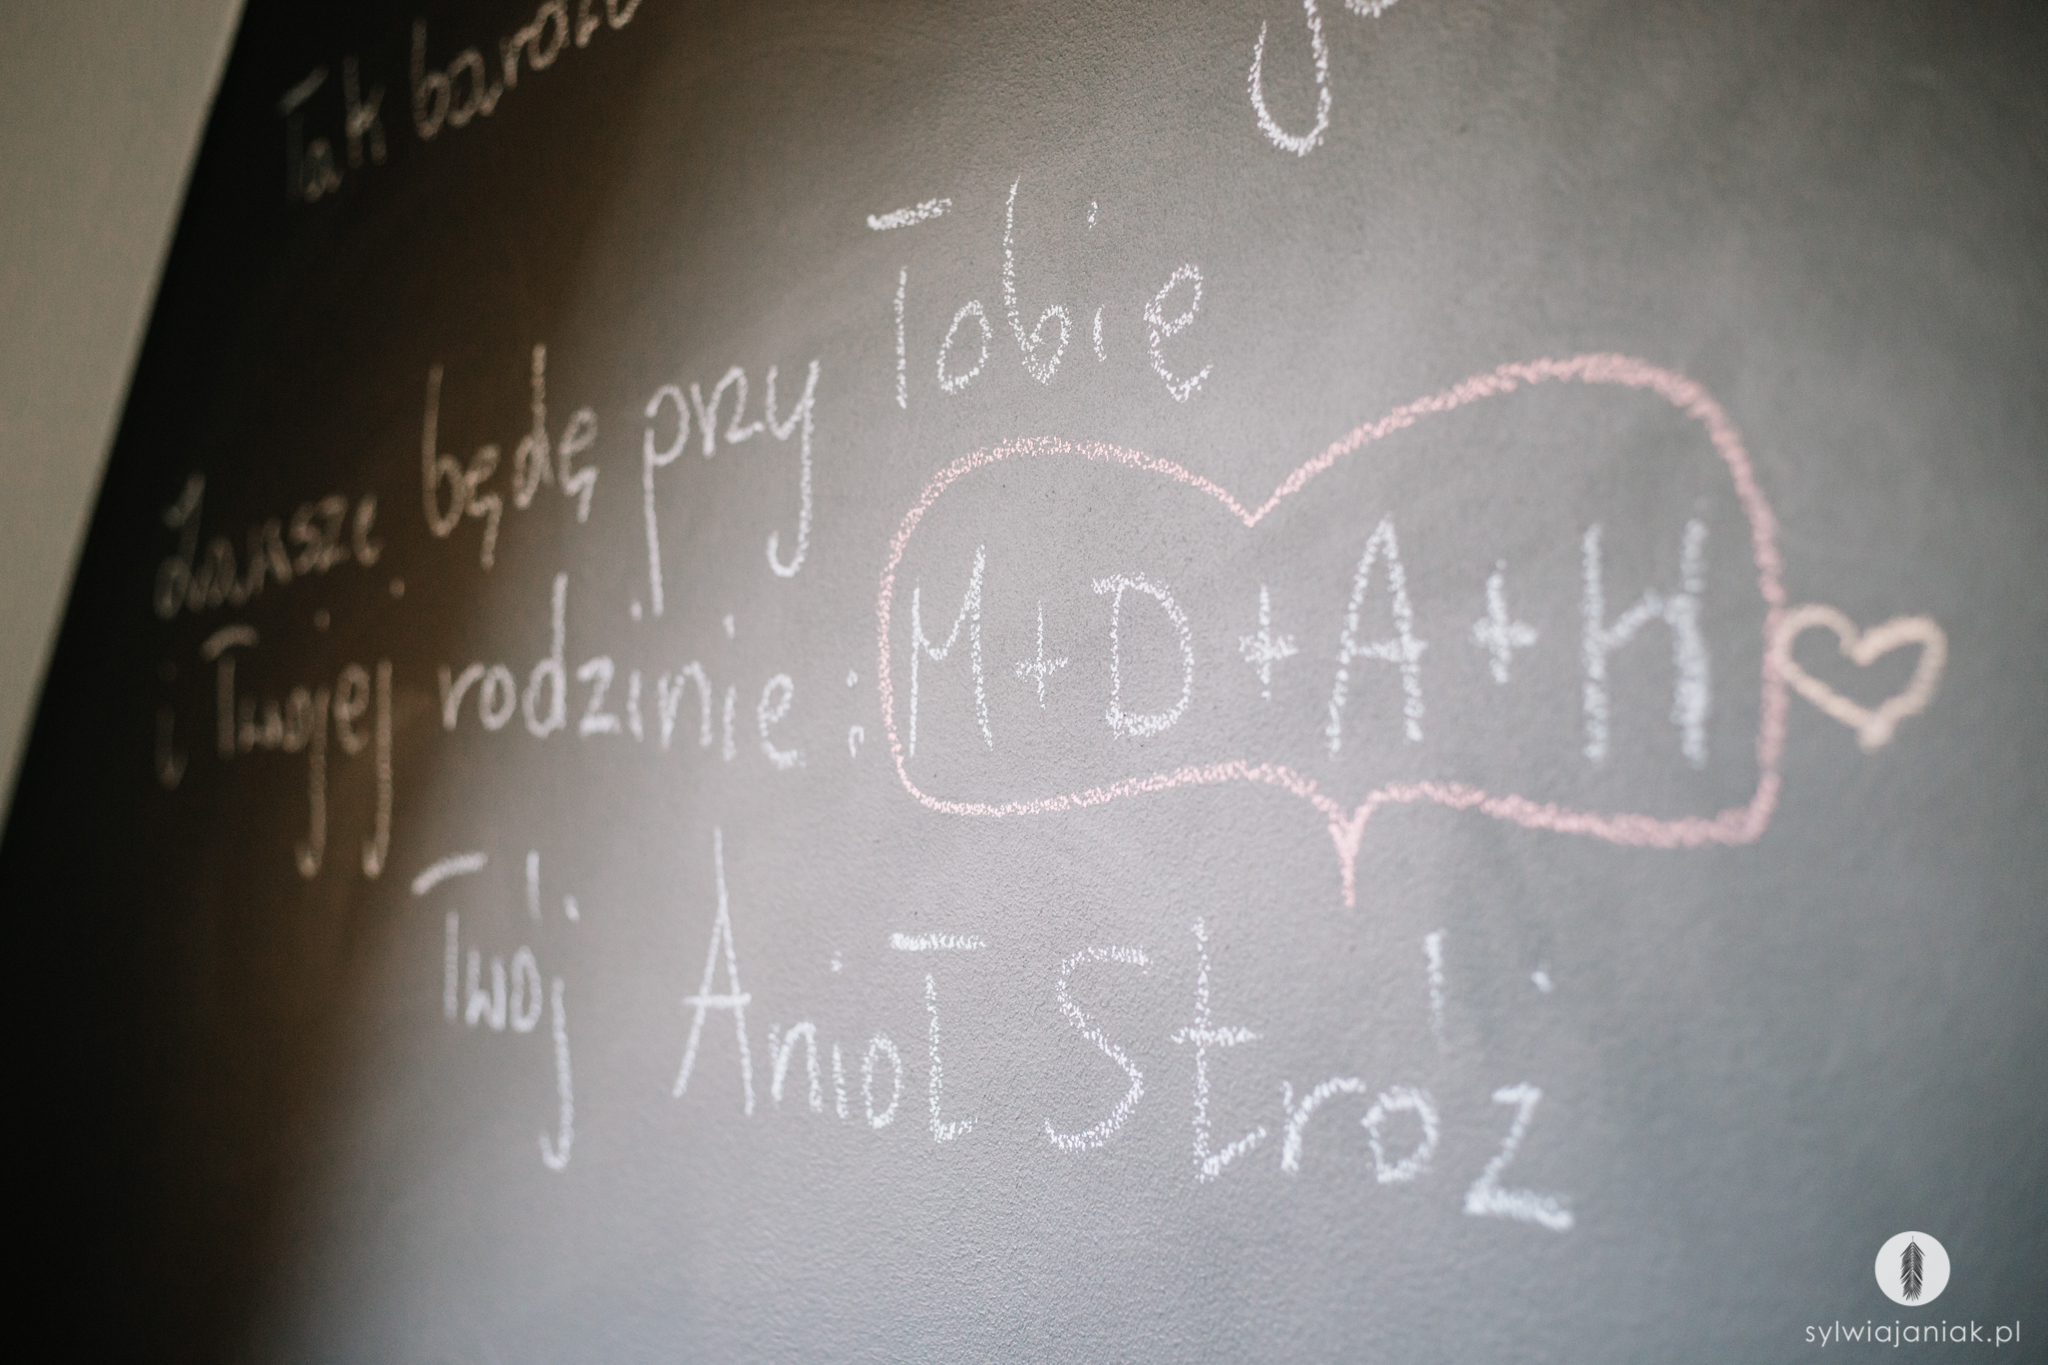 Tak bardzo
Zawsze będę przy Tobie
i Twojej rodzinie: M+D+A+H
Twój Anioł Stróż
sylwiajaniak.pl